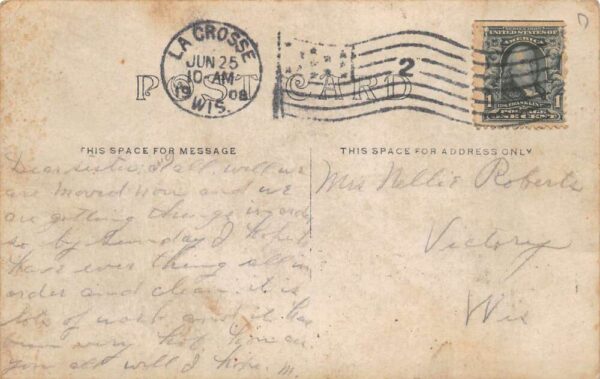 LA CROSSE
JUN 25
10-AM
1908
WIS.
2
POST CARD
UNITED STATES OF
AMERICA
1 1
FRANKLIN
POSTAGE
ONE CENT
THIS SPACE FOR MESSAGE
Dear sister and all, well we
are moved now and we
are getting things in order
so by Sunday I hope to
have every thing all in
order and clean. it is
lots of work and it has
been very hot
you all well I hope. M.
THIS SPACE FOR ADDRESS ONLY
Mrs Nellie Roberts
Victory
Wis